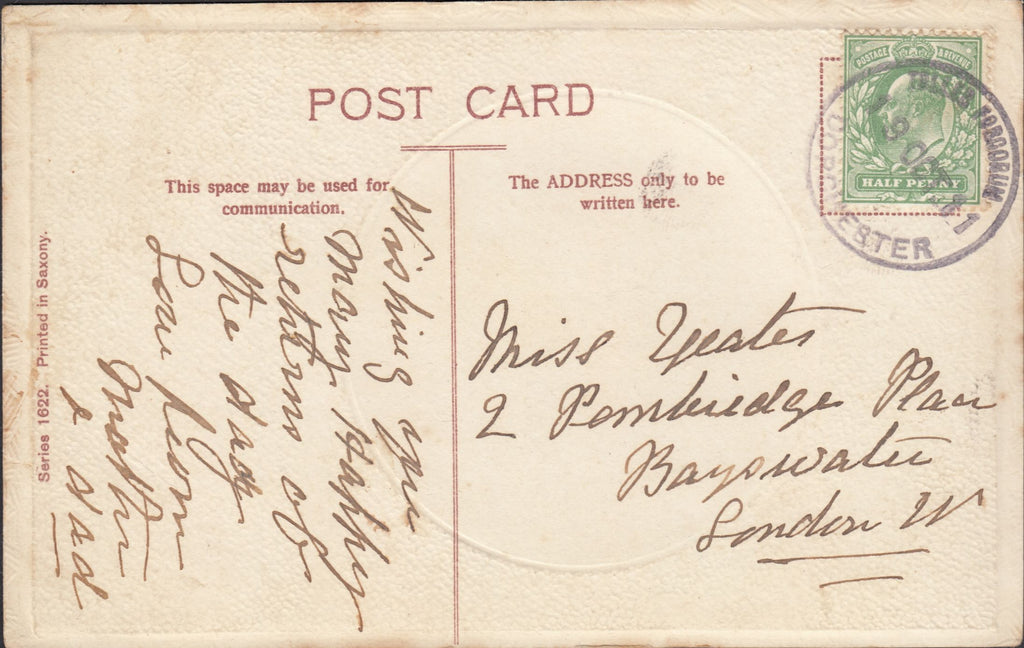 POST CARD
This space may be used for
communication.
The ADDRESS only to be
written here.
POSTAGE & REVENUE
HALF PENNY
19 OC
DORCHESTER
Series 1622. Printed in Saxony.
Wishing you
Many Happy
returns of
the day
Love from
Mother
& Dad
Miss Yeates
2 Pembridge Place
Bayswater
London W